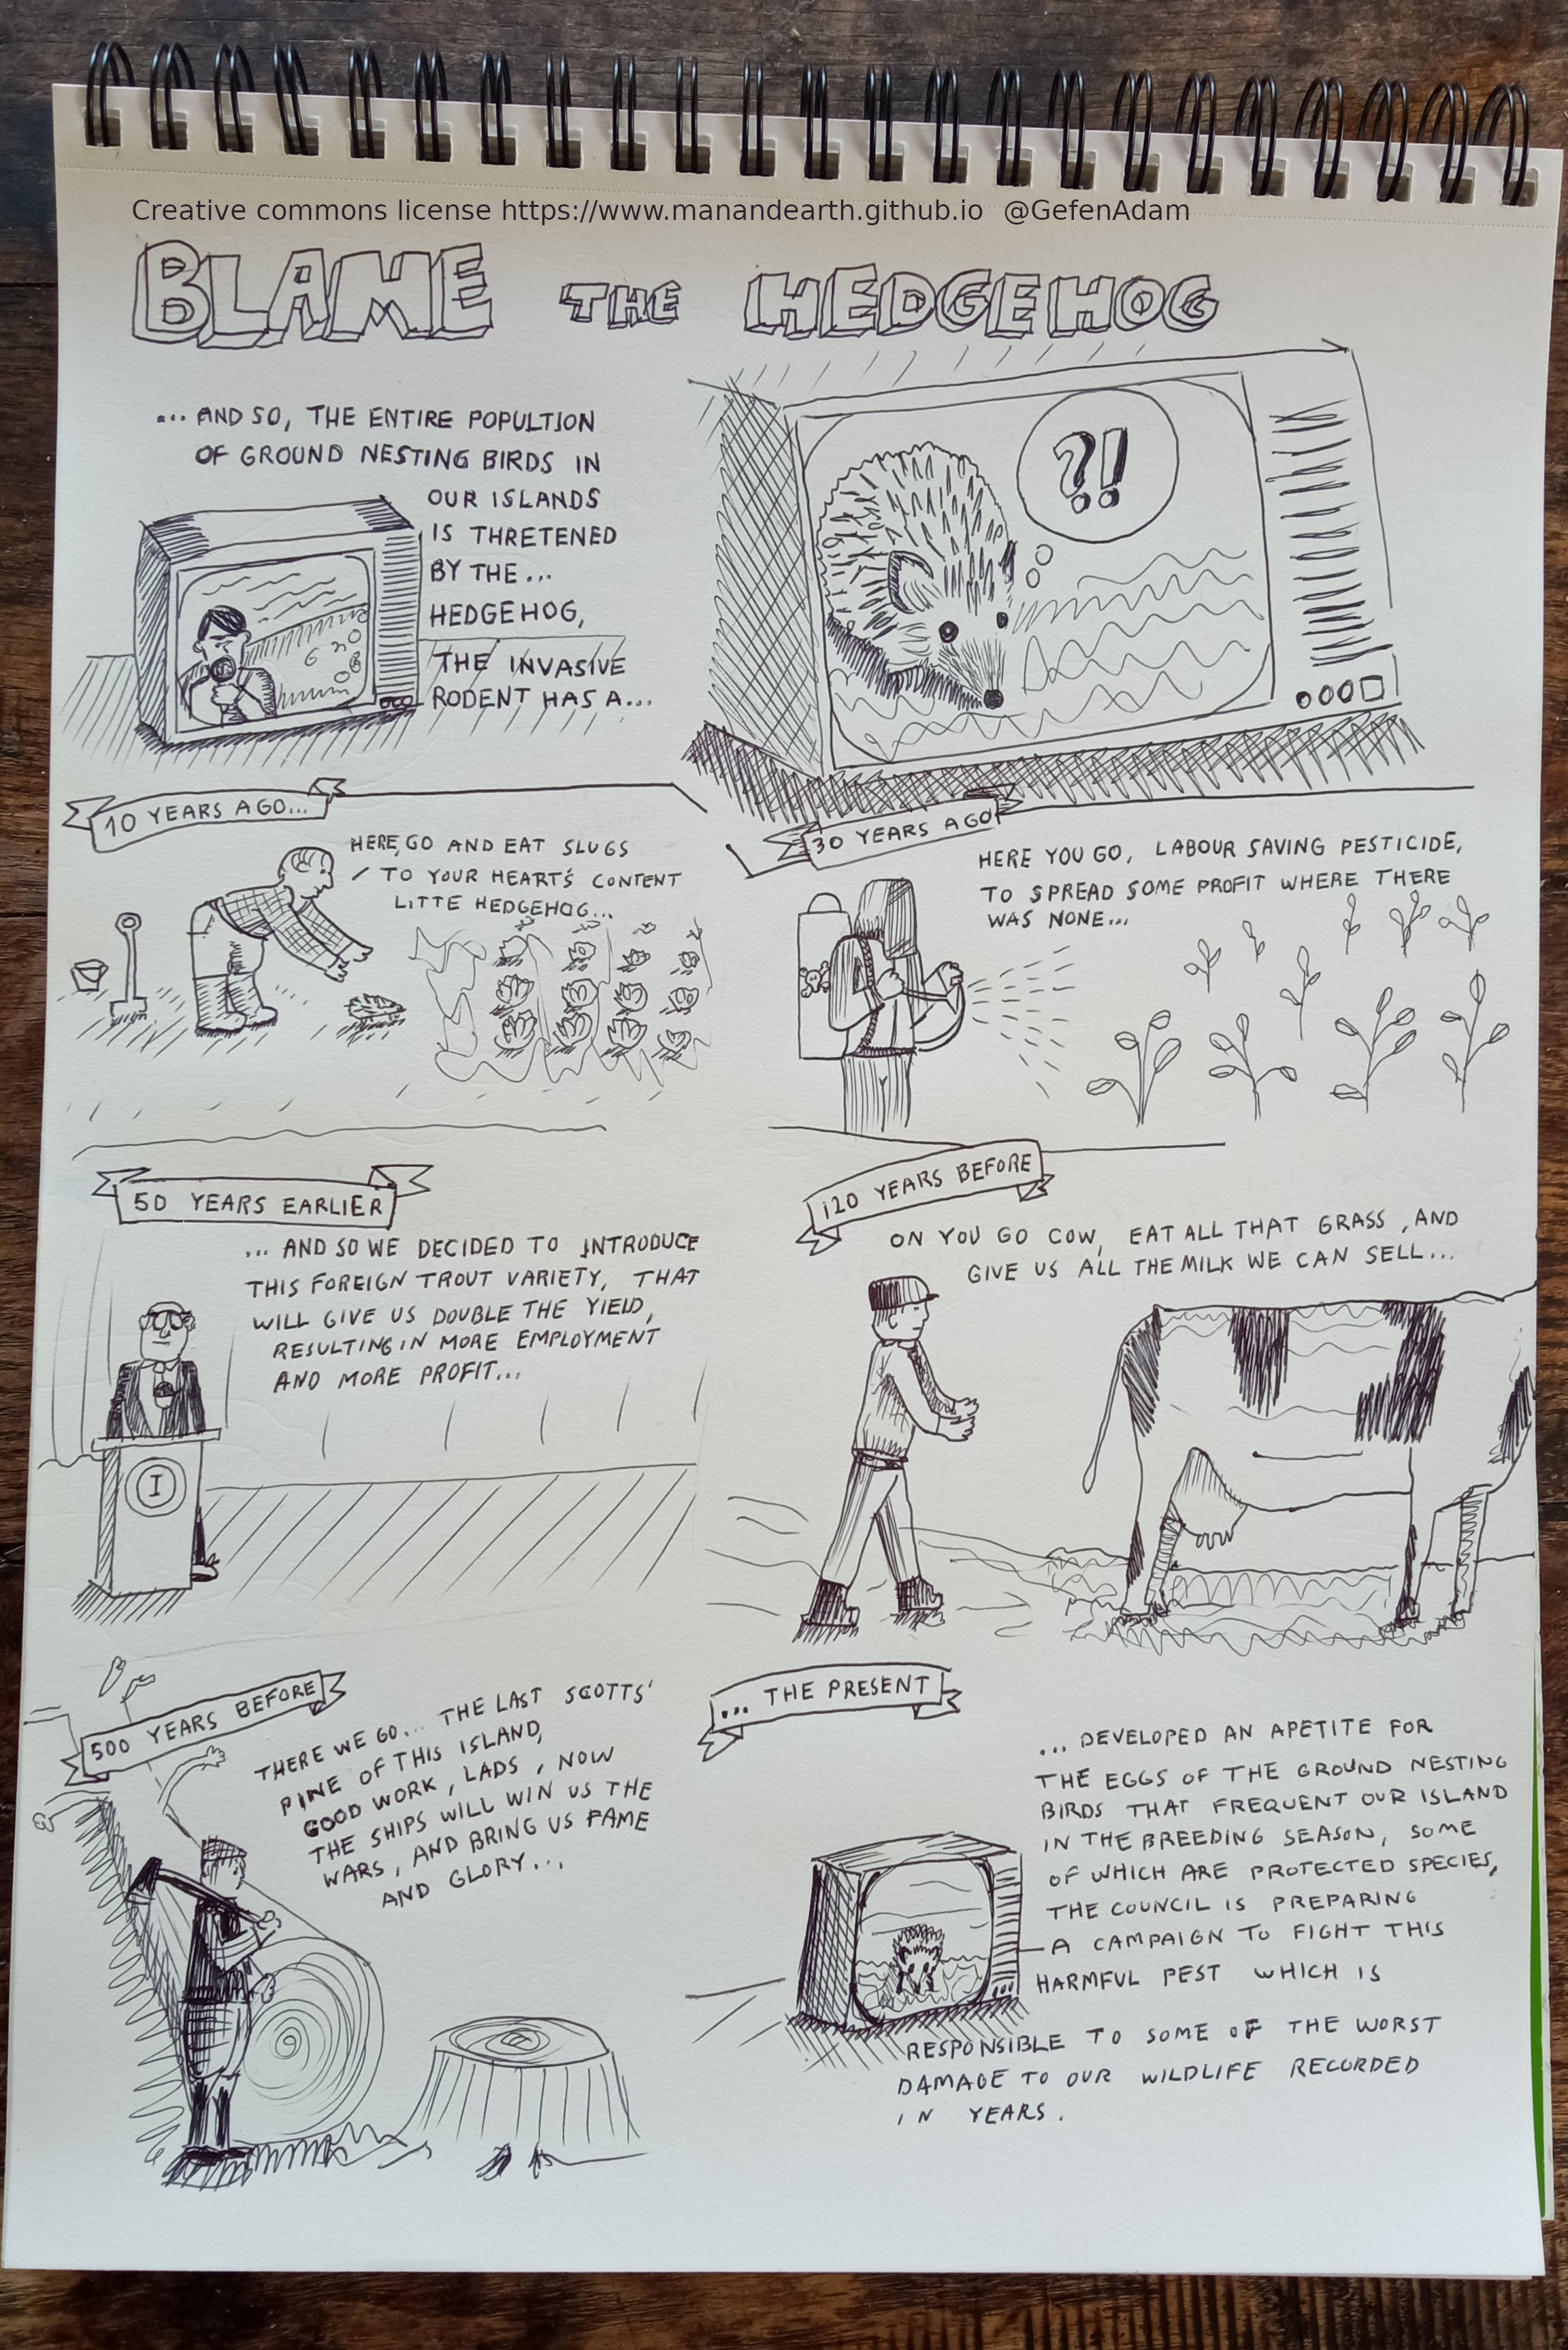 Creative commons license https://www.manandearth.github.io @GefenAdam
BLAME THE HEDGEHOG
... AND SO, THE ENTIRE POPULTION
OF GROUND NESTING BIRDS IN
OUR ISLANDS
IS THRETENED
BY THE...
HEDGEHOG,
THE INVASIVE
RODENT HAS A...
?!
10 YEARS AGO...
HERE, GO AND EAT SLUGS
TO YOUR HEART'S CONTENT
LITTE HEDGEHOG...
30 YEARS AGO
HERE YOU GO, LABOUR SAVING PESTICIDE,
TO SPREAD SOME PROFIT WHERE THERE
WAS NONE...
50 YEARS EARLIER
... AND SO WE DECIDED TO INTRODUCE
THIS FOREIGN TROUT VARIETY, THAT
WILL GIVE US DOUBLE THE YIELD,
RESULTING IN MORE EMPLOYMENT
AND MORE PROFIT...
I
120 YEARS BEFORE
ON YOU GO COW, EAT ALL THAT GRASS, AND
GIVE US ALL THE MILK WE CAN SELL...
500 YEARS BEFORE
THERE WE GO... THE LAST SCOTTS'
PINE OF THIS ISLAND,
GOOD WORK, LADS, NOW
THE SHIPS WILL WIN US THE
WARS, AND BRING US FAME
AND GLORY...
... THE PRESENT
... DEVELOPED AN APETITE FOR
THE EGGS OF THE GROUND NESTING
BIRDS THAT FREQUENT OUR ISLAND
IN THE BREEDING SEASON, SOME
OF WHICH ARE PROTECTED SPECIES,
THE COUNCIL IS PREPARING
A CAMPAIGN TO FIGHT THIS
HARMFUL PEST WHICH IS
RESPONSIBLE TO SOME OF THE WORST
DAMAGE TO OUR WILDLIFE RECORDED
IN YEARS.